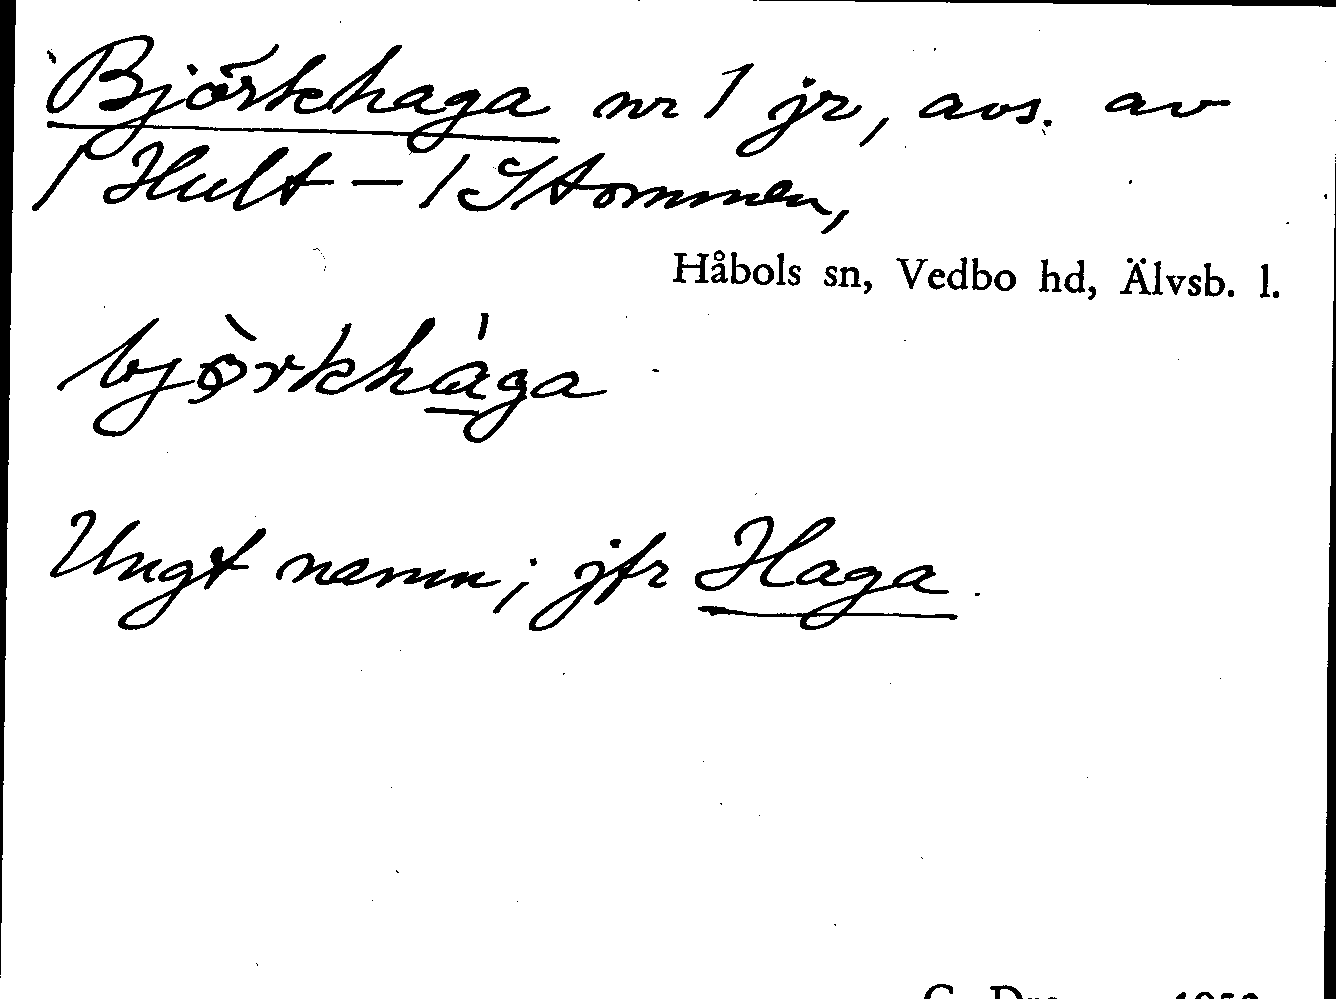 Björkhaga nr 1 jr, avs. av
1 Hult – 1 Stommen,
Håbols sn, Vedbo hd, Älvsb. l.
bjǫ̀rkhága
Ungt namn; jfr Haga.